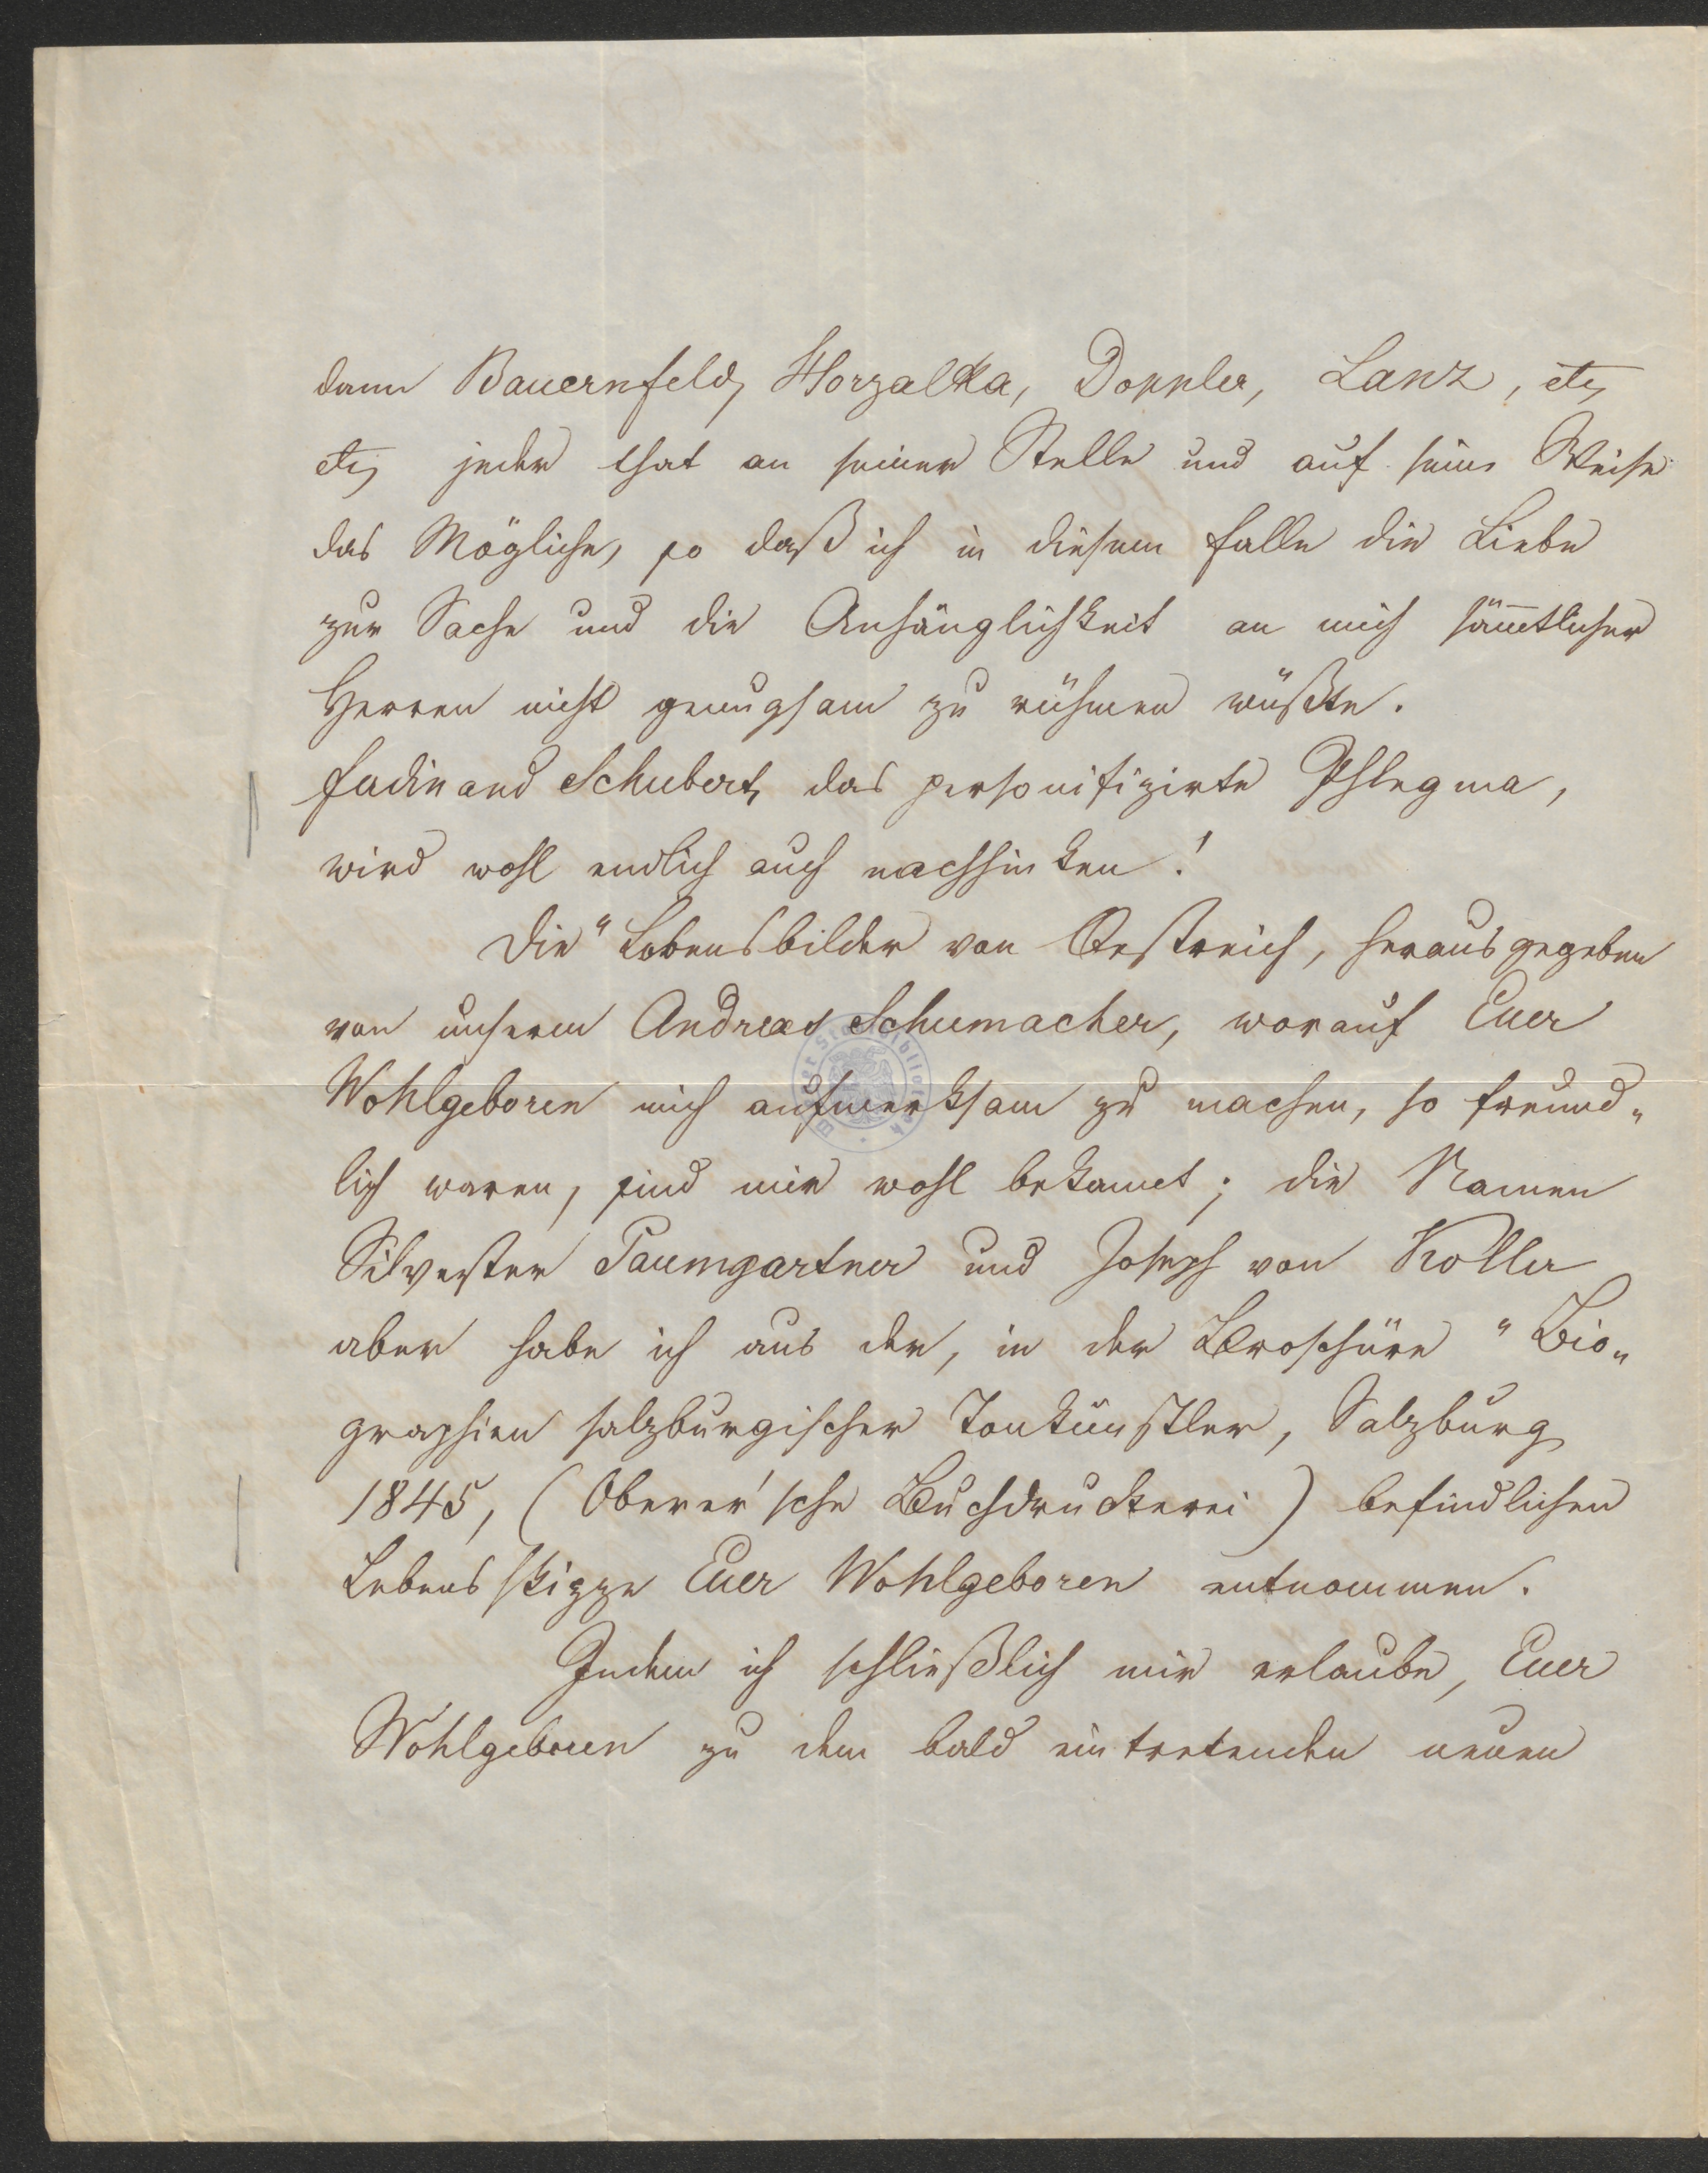 dann Bauernfeld, Horzalka, Doppler, Lanz, etc,
etc, jeder that an seiner Stelle und auf seine Weise
das Mögliche, so daß ich in diesem Falle die Liebe
zur Sache und die Anhänglichkeit an mich sämtlicher
Herren nicht genugsam zu rühmen wüßte.
Ferdinand Schubert, das personifizirte Phlegma,
wird wohl endlich auch nachhinken!
Die "Lebensbilder von Oestreich, herausgegeben
von unserem Andreas Schumacher, worauf Euer
Wohlgeboren mich aufmerksam zu machen, so freund„
lich waren, sind mir wohl bekannt; die Namen
Silvester Paumgartner und Joseph von Koller
aber habe ich aus der, in der Broschüre "Bio„
graphien salzburgischer Tonkünstler, Salzburg
1845, (Oberer'sche Buchdruckerei) befindlichen
Lebensskizze Euer Wohlgeboren entnommen.
Indem ich schließlich mir erlaube, Euer
Wohlgeboren zu dem bald eintretenden neuen